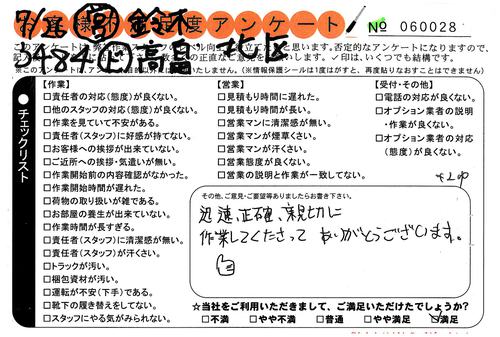 お客様満足度アンケート
№ 060028
7/12 ㊪ 鈴木
3484 ㊤ 高畠 北区
【作業】
□責任者の対応(態度)が良くない。
□他のスタッフの対応(態度)が良くない。
□作業を見ていて不安がある。
□責任者(スタッフ)に好感が持てない。
□お客様への挨拶が出来ていない。
□ご近所への挨拶・気遣いが無い。
□作業開始前の内容確認がなかった。
□作業開始時間が遅れた。
□荷物の取り扱いが雑である。
□お部屋の養生が出来ていない。
□作業時間が長すぎる。
□責任者(スタッフ)に清潔感が無い。
□責任者(スタッフ)が汗くさい。
□トラックが汚い。
□梱包資材が汚い。
□運転が不安(下手)である。
□靴下の履き替えをしてない。
□スタッフにやる気がみられない。
【営業】
□見積もり時間に遅れた。
□見積もり時間が長い。
□営業マンに清潔感が無い。
□営業マンが煙草くさい。
□営業マンが汗くさい。
□営業態度が良くない。
□営業の説明と作業が一致してない。
【受付・その他】
□電話の対応が良くない。
□オプション業者の説明
・作業が良くない。
□オプション業者の対応
(態度)が良くない。
●チェックリスト
その他、ご意見・ご要望等ありましたらお書き下さい。
迅速、正確、親切に
作業してくださって ありがとうございます。
☆当社をご利用いただきまして、ご満足いただけたでしょうか?
□不満 □やや不満 □普通 □やや満足 ☑満足